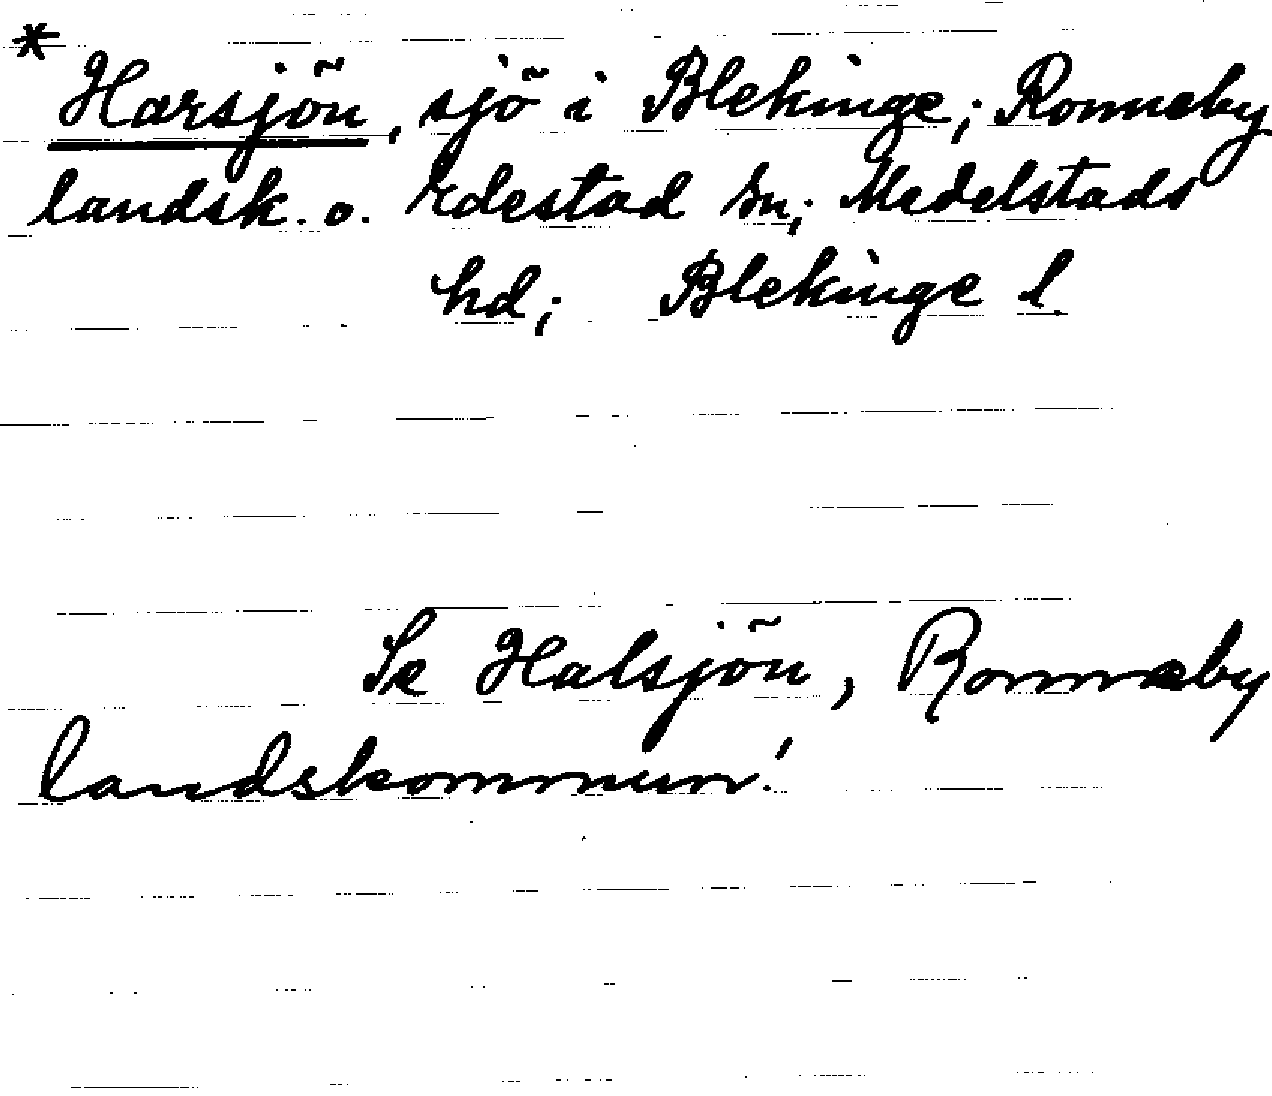 * Harsjön, sjö i Blekinge; Ronneby
landsk. o. Edestad sn; Medelstads
hd; Blekinge l.
Se Halsjön, Ronneby
landskommun!